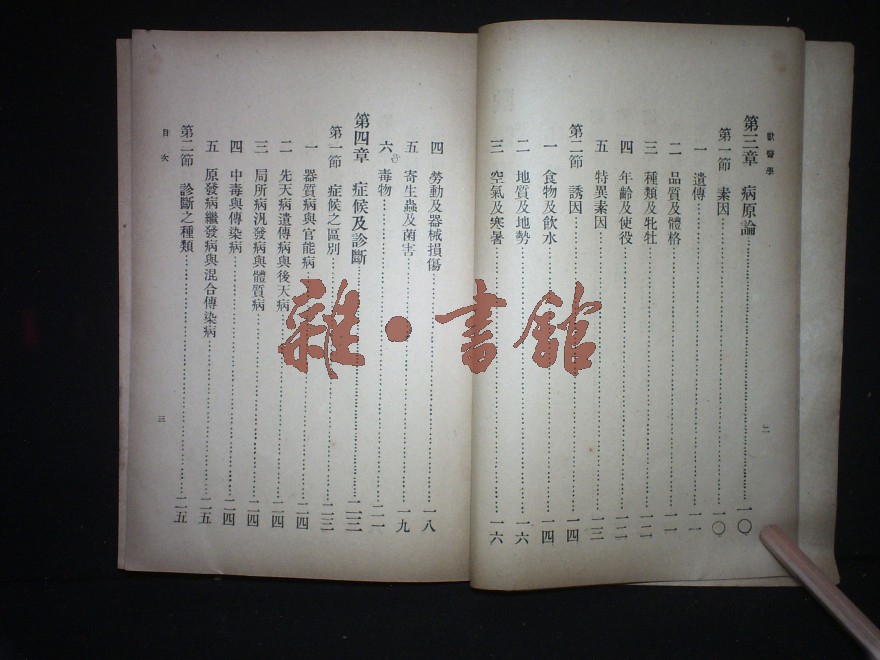 獸醫學
第三章 病原論……一〇
第一節 素因……一〇
一 遺傳……一一
二 品質及體格……一一
三 種類及牝牡……一二
四 年齡及使役……一二
五 特異素因……一三
第二節 誘因……一四
一 食物及飲水……一四
二 地質及地勢……一六
三 空氣及寒暑……一六
二
四 勞動及器械損傷……一八
五 寄生蟲及菌害……一九
六 毒物……二一
第四章 症候及診斷……二三
第一節 症候之區別……二三
一 器質病與官能病……二四
二 先天病遺傳病與後天病……二四
三 局所病汎發病與體質病……二四
四 中毒與傳染病……二四
五 原發病繼發病與混合傳染病……二五
第二節 診斷之種類……二五
目次
三
雜·書館